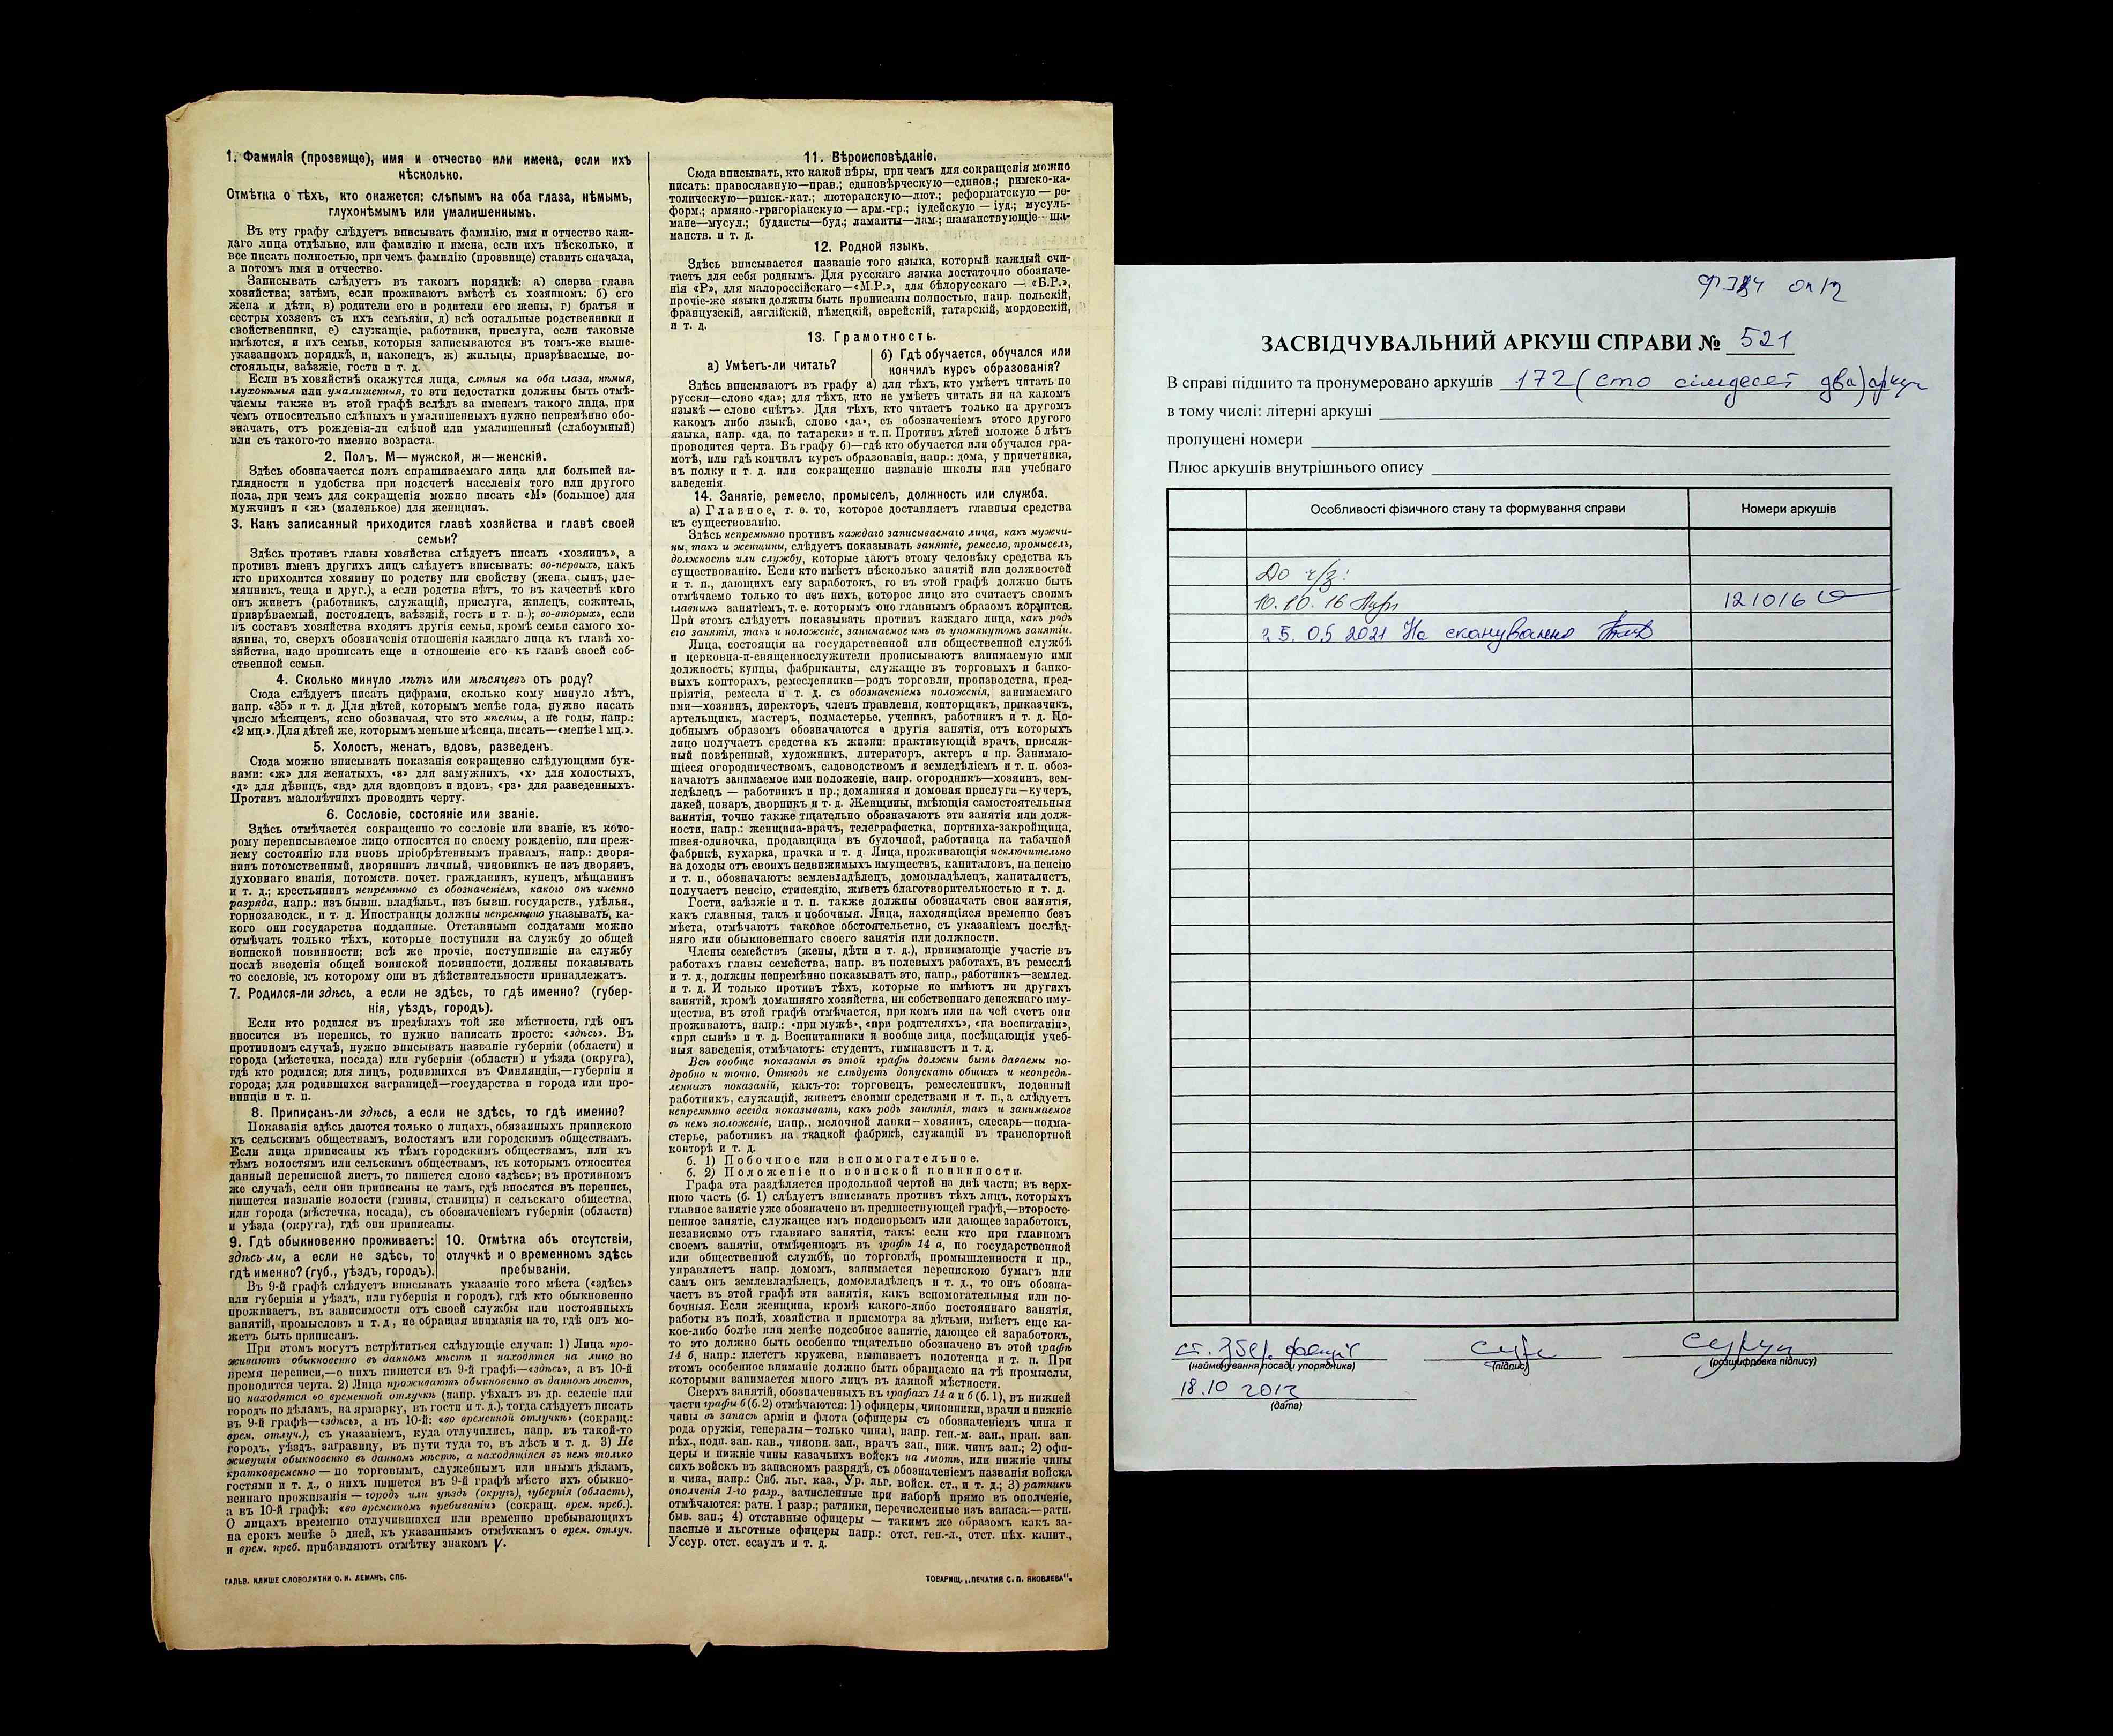 1. Фамилія (прозвище), имя и отчество или имена, если ихъ
нѣсколько.
Отмѣтка о тѣхъ, кто окажется: слѣпымъ на оба глаза, нѣмымъ,
глухонѣмымъ или умалишеннымъ.
Въ эту графу слѣдуетъ вписывать фамилію, имя и отчество каж-
даго лица отдѣльно, или фамилію и имена, если ихъ нѣсколько, и
все писать полностью, при чемъ фамилію (прозвище) ставить сначала,
а потомъ имя и отчество.
Записывать слѣдуетъ въ такомъ порядкѣ: а) сперва глава
хозяйства; затѣмъ, если проживаютъ вмѣстѣ съ хозяиномъ: б) его
жена и дѣти, в) родители его и родители его жены, г) братья и
сестры хозяевъ съ ихъ семьями, д) всѣ остальные родственники и
свойственники, е) служащіе, работники, прислуга, если таковые
имѣются, и ихъ семьи, которыя записываются въ томъ-же выше-
указанномъ порядкѣ, и, наконецъ, ж) жильцы, призрѣваемые, по-
стояльцы, заѣзжіе, гости и т. д.
Если въ хозяйствѣ окажутся лица, слѣпыя на оба глаза, нѣмыя,
глухонѣмыя или умалишенныя, то эти недостатки должны быть отмѣ-
чаемы также въ этой графѣ вслѣдъ за именемъ такого лица, при
чемъ относительно слѣпыхъ и умалишенныхъ нужно непремѣнно обо-
значать, отъ рожденія-ли слѣпой или умалишенный (слабоумный)
или съ такого-то именно возраста.
2. Полъ. М—мужской, ж—женскій.
Здѣсь обозначается полъ спрашиваемаго лица для большей на-
глядности и удобства при подсчетѣ населенія того или другого
пола, при чемъ для сокращенія можно писать «М» (большое) для
мужчинъ и «ж» (маленькое) для женщинъ.
3. Какъ записанный приходится главѣ хозяйства и главѣ своей
семьи?
Здѣсь противъ главы хозяйства слѣдуетъ писать «хозяинъ», а
противъ именъ другихъ лицъ слѣдуетъ вписывать: во-первыхъ, какъ
кто приходится хозяину по родству или свойству (жена, сынъ, пле-
мянникъ, теща и друг.), а если родства нѣтъ, то въ качествѣ кого
онъ живетъ (работникъ, служащій, прислуга, жилецъ, сожитель,
призрѣваемый, постоялецъ, заѣзжій, гость и т. п.); во-вторыхъ, если
въ составъ хозяйства входятъ другія семьи, кромѣ семьи самого хо-
зяина, то, сверхъ обозначенія отношенія каждаго лица къ главѣ хо-
зяйства, надо прописать еще и отношеніе его къ главѣ своей соб-
ственной семьи.
4. Сколько минуло лѣтъ или мѣсяцевъ отъ роду?
Сюда слѣдуетъ писать цифрами, сколько кому минуло лѣтъ,
напр. «35» и т. д. Для дѣтей, которымъ менѣе года, нужно писать
число мѣсяцевъ, ясно обозначая, что это мѣсяцы, а не годы, напр.:
«2 мц.». Для дѣтей же, которымъ меньше мѣсяца, писать—«менѣе 1 мц.».
5. Холостъ, женатъ, вдовъ, разведенъ.
Сюда можно вписывать показанія сокращенно слѣдующими бук-
вами: «ж» для женатыхъ, «з» для замужнихъ, «х» для холостыхъ,
«д» для дѣвицъ, «вд» для вдовцовъ и вдовъ, «рз» для разведенныхъ.
Противъ малолѣтнихъ проводить черту.
6. Сословіе, состояніе или званіе.
Здѣсь отмѣчается сокращенно то сословіе или званіе, къ кото-
рому переписываемое лицо относится по своему рожденію, или преж-
нему состоянію или вновь пріобрѣтеннымъ правамъ, напр.: дворя-
нинъ потомственный, дворянинъ личный, чиновникъ не изъ дворянъ,
духовнаго званія, потомств. почет. гражданинъ, купецъ, мѣщанинъ
и т. д.; крестьянинъ непремѣнно съ обозначеніемъ, какого онъ именно
разряда, напр.: изъ бывш. владѣльч., изъ бывш. государств., удѣльн.,
горнозаводск., и т. д. Иностранцы должны непремѣнно указывать, ка-
кого они государства подданные. Отставными солдатами можно
отмѣчать только тѣхъ, которые поступили на службу до общей
воинской повинности; всѣ же прочіе, поступившіе на службу
послѣ введенія общей воинской повинности, должны показывать
то сословіе, къ которому они въ дѣйствительности принадлежатъ.
7. Родился-ли здѣсь, а если не здѣсь, то гдѣ именно? (губер-
нія, уѣздъ, городъ).
Если кто родился въ предѣлахъ той же мѣстности, гдѣ онъ
вносится въ перепись, то нужно написать просто: «здѣсь». Въ
противномъ случаѣ, нужно вписывать названіе губерніи (области) и
города (мѣстечка, посада) или губерніи (области) и уѣзда (округа),
гдѣ кто родился; для лицъ, родившихся въ Финляндіи,—губерніи и
города; для родившихся заграницей—государства и города или про-
винціи и т. п.
8. Приписанъ-ли здѣсь, а если не здѣсь, то гдѣ именно?
Показанія здѣсь даются только о лицахъ, обязанныхъ припискою
къ сельскимъ обществамъ, волостямъ или городскимъ обществамъ.
Если лица приписаны къ тѣмъ городскимъ обществамъ, или къ
тѣмъ волостямъ или сельскимъ обществамъ, къ которымъ относится
данный переписной листъ, то пишется слово «здѣсь»; въ противномъ
же случаѣ, если они приписаны не тамъ, гдѣ вносятся въ перепись,
пишется названіе волости (гмины, станицы) и сельскаго общества,
или города (мѣстечка, посада), съ обозначеніемъ губерніи (области)
и уѣзда (округа), гдѣ они приписаны.
9. Гдѣ обыкновенно проживаетъ:
здѣсь ли, а если не здѣсь, то
гдѣ именно? (губ., уѣздъ, городъ).
10. Отмѣтка объ отсутствіи,
отлучкѣ и о временномъ здѣсь
пребываніи.
Въ 9-й графѣ слѣдуетъ вписывать указаніе того мѣста («здѣсь»
или губернія и уѣздъ, или губернія и городъ), гдѣ кто обыкновенно
проживаетъ, въ зависимости отъ своей службы или постоянныхъ
занятій, промысловъ и т. д., не обращая вниманія на то, гдѣ онъ мо-
жетъ быть приписанъ.
При этомъ могутъ встрѣтиться слѣдующіе случаи: 1) Лица про-
живаютъ обыкновенно въ данномъ мѣстѣ и находятся на лицо во
время переписи,—о нихъ пишется въ 9-й графѣ—«здѣсь», а въ 10-й
проводится черта. 2) Лица проживаютъ обыкновенно въ данномъ мѣстѣ,
но находятся во временной отлучкѣ (напр. уѣхалъ въ др. селеніе или
городъ по дѣламъ, на ярмарку, въ гости и т. д.), тогда слѣдуетъ писать
въ 9-й графѣ—«здѣсь», а въ 10-й: «во временной отлучкѣ» (сокращ.:
врем. отлуч.), съ указаніемъ, куда отлучились, напр. въ такой-то
городъ, уѣздъ, заграницу, въ пути туда то, въ лѣсъ и т. д. 3) Не
живущія обыкновенно въ данномъ мѣстѣ, а находящіяся въ немъ только
кратковременно — по торговымъ, служебнымъ или инымъ дѣламъ,
гостями и т. д., о нихъ пишется въ 9-й графѣ мѣсто ихъ обыкно-
веннаго проживанія — городъ или уѣздъ (округъ), губернія (область),
а въ 10-й графѣ: «во временномъ пребываніи» (сокращ. врем. преб.).
О лицахъ временно отлучившихся или временно пребывающихъ
на срокъ менѣе 5 дней, къ указаннымъ отмѣткамъ о врем. отлуч.
и врем. преб. прибавляютъ отмѣтку знакомъ V.
ГАЛЬВ. КЛИШЕ СЛОВОЛИТНИ О. И. ЛЕМАНЪ, СПБ.
11. Вѣроисповѣданіе.
Сюда вписывать, кто какой вѣры, при чемъ для сокращенія можно
писать: православную—прав.; единовѣрческую—единов.; римско-ка-
толическую—римск.-кат.; лютеранскую—лют.; реформатскую — ре-
форм.; армяно-григоріанскую — арм.-гр.; іудейскую — іуд.; мусуль-
мане—мусул.; буддисты—буд.; ламаиты—лам.; шаманствующіе — ша-
манств. и т. д.
12. Родной языкъ.
Здѣсь вписывается названіе того языка, который каждый счи-
таетъ для себя роднымъ. Для русскаго языка достаточно обозначе-
нія «Р», для малороссійскаго—«М.Р.», для бѣлорусскаго — «Б.Р.»,
прочіе-же языки должны быть прописаны полностью, напр. польскій,
французскій, англійскій, нѣмецкій, еврейскій, татарскій, мордовскій,
и т. д.
13. Грамотность.
а) Умѣетъ-ли читать?
б) Гдѣ обучается, обучался или
кончилъ курсъ образованія?
Здѣсь вписываютъ въ графу а) для тѣхъ, кто умѣетъ читать по
русски—слово «да»; для тѣхъ, кто не умѣетъ читать ни на какомъ
языкѣ — слово «нѣтъ». Для тѣхъ, кто читаетъ только на другомъ
какомъ либо языкѣ, слово «да», съ обозначеніемъ этого другого
языка, напр. «да, по татарски» и т. п. Противъ дѣтей моложе 5 лѣтъ
проводится черта. Въ графу б)—гдѣ кто обучается или обучался гра-
мотѣ, или гдѣ кончилъ курсъ образованія, напр.: дома, у причетника,
въ полку и т. д. или сокращенно названіе школы или учебнаго
заведенія.
14. Занятіе, ремесло, промыселъ, должность или служба.
а) Главное, т. е. то, которое доставляетъ главныя средства
къ существованію.
Здѣсь непремѣнно противъ каждаго записываемаго лица, какъ мужчи-
ны, такъ и женщины, слѣдуетъ показывать занятіе, ремесло, промыселъ,
должность или службу, которые даютъ этому человѣку средства къ
существованію. Если кто имѣетъ нѣсколько занятій или должностей
и т. п., дающихъ ему заработокъ, то въ этой графѣ должно быть
отмѣчаемо только то изъ нихъ, которое лицо это считаетъ своимъ
главнымъ занятіемъ, т. е. которымъ оно главнымъ образомъ кормится.
При этомъ слѣдуетъ показывать противъ каждаго лица, какъ родъ
его занятія, такъ и положеніе, занимаемое имъ въ упомянутомъ занятіи.
Лица, состоящія на государственной или общественной службѣ
и церковно-и-священнослужители прописываютъ занимаемую ими
должность; купцы, фабриканты, служащіе въ торговыхъ и банко-
выхъ конторахъ, ремесленники—родъ торговли, производства, пред-
пріятія, ремесла и т. д. съ обозначеніемъ положенія, занимаемаго
ими—хозяинъ, директоръ, членъ правленія, конторщикъ, приказчикъ,
артельщикъ, мастеръ, подмастерье, ученикъ, работникъ и т. д. По-
добнымъ образомъ обозначаются и другія занятія, отъ которыхъ
лицо получаетъ средства къ жизни: практикующій врачъ, присяж-
ный повѣренный, художникъ, литераторъ, актеръ и пр. Занимаю-
щіеся огородничествомъ, садоводствомъ и земледѣліемъ и т. п. обоз-
начаютъ занимаемое ими положеніе, напр. огородникъ—хозяинъ, зем-
ледѣлецъ — работникъ и пр.; домашняя и домовая прислуга—кучеръ,
лакей, поваръ, дворникъ и т. д. Женщины, имѣющія самостоятельныя
занятія, точно также тщательно обозначаютъ эти занятія или долж-
ности, напр.: женщина-врачъ, телеграфистка, портниха-закройщица,
швея-одиночка, продавщица въ булочной, работница на табачной
фабрикѣ, кухарка, прачка и т. д. Лица, проживающія исключительно
на доходы отъ своихъ недвижимыхъ имуществъ, капиталовъ, на пенсію
и т. п., обозначаютъ: землевладѣлецъ, домовладѣлецъ, капиталистъ,
получаетъ пенсію, стипендію, живетъ благотворительностью и т. д.
Гости, заѣзжіе и т. п. также должны обозначать свои занятія,
какъ главныя, такъ и побочныя. Лица, находящіяся временно безъ
мѣста, отмѣчаютъ таковое обстоятельство, съ указаніемъ послѣд-
няго или обыкновеннаго своего занятія или должности.
Члены семействъ (жены, дѣти и т. д.), принимающіе участіе въ
работахъ главы семейства, напр. въ полевыхъ работахъ, въ ремеслѣ
и т. д., должны непремѣнно показывать это, напр., работникъ—землед.
и т. д. И только противъ тѣхъ, которые не имѣютъ ни другихъ
занятій, кромѣ домашняго хозяйства, ни собственнаго денежнаго иму-
щества, въ этой графѣ отмѣчается, при комъ или на чей счетъ они
проживаютъ, напр.: «при мужѣ», «при родителяхъ», «на воспитаніи»,
«при сынѣ» и т. д. Воспитанники и вообще лица, посѣщающія учеб-
ныя заведенія, отмѣчаютъ: студентъ, гимназистъ и т. д.
Всѣ вообще показанія въ этой графѣ должны быть даваемы по-
дробно и точно. Отнюдь не слѣдуетъ допускать общихъ и неопредѣ-
ленныхъ показаній, какъ-то: торговецъ, ремесленникъ, поденный
работникъ, служащій, живетъ своими средствами и т. п., а слѣдуетъ
непремѣнно всегда показывать, какъ родъ занятія, такъ и занимаемое
въ немъ положеніе, напр., мелочной лавки—хозяинъ, слесарь—подма-
стерье, работникъ на ткацкой фабрикѣ, служащій въ транспортной
конторѣ и т. д.
б. 1) Побочное или вспомогательное.
б. 2) Положеніе по воинской повинности.
Графа эта раздѣляется продольной чертой на двѣ части; въ верх-
нюю часть (б. 1) слѣдуетъ вписывать противъ тѣхъ лицъ, которыхъ
главное занятіе уже обозначено въ предшествующей графѣ,—второсте-
пенное занятіе, служащее имъ подспорьемъ или дающее заработокъ,
независимо отъ главнаго занятія, такъ: если кто при главномъ
своемъ занятіи, отмѣченномъ въ графѣ 14 а, по государственной
или общественной службѣ, по торговлѣ, промышленности и пр.,
управляетъ напр. домомъ, занимается перепискою бумагъ или
самъ онъ землевладѣлецъ, домовладѣлецъ и т. д., то онъ обозна-
чаетъ въ этой графѣ эти занятія, какъ вспомогательныя или по-
бочныя. Если женщина, кромѣ какого-либо постояннаго занятія,
работы въ полѣ, хозяйства и присмотра за дѣтьми, имѣетъ еще ка-
кое-либо болѣе или менѣе подсобное занятіе, дающее ей заработокъ,
то это должно быть особенно тщательно обозначено въ этой графѣ
14 б, напр.: плететъ кружева, вышиваетъ полотенца и т. п. При
этомъ особенное вниманіе должно быть обращаемо на тѣ промыслы,
которыми занимается много лицъ въ данной мѣстности.
Сверхъ занятій, обозначенныхъ въ графахъ 14 а и б (б. 1), въ нижней
части графы б (б. 2) отмѣчаются: 1) офицеры, чиновники, врачи и нижніе
чины въ запасѣ арміи и флота (офицеры съ обозначеніемъ чина и
рода оружія, генералы—только чина), напр. ген.-м. зап., прап. зап.
пѣх., подп. зап. кав., чиновн. зап., врачъ зап., ниж. чинъ зап.; 2) офи-
церы и нижніе чины казачьихъ войскъ на льготѣ, или нижніе чины
сихъ войскъ въ запасномъ разрядѣ, съ обозначеніемъ названія войска
и чина, напр.: Сиб. льг. каз., Ур. льг. войск. ст., и т. д.; 3) ратники
ополченія 1-го разр., зачисленные при наборѣ прямо въ ополченіе,
отмѣчаются: ратн. 1 разр.; ратники, перечисленные изъ запаса.—ратн.
быв. зап.; 4) отставные офицеры — такимъ же образомъ какъ за-
пасные и льготные офицеры напр.: отст. ген.-л., отст. пѣх. капит.,
Уссур. отст. есаулъ и т. д.
ТОВАРИЩ. „ПЕЧАТНЯ С. П. ЯКОВЛЕВА“.
оп 2
ЗАСВІДЧУВАЛЬНИЙ АРКУШ СПРАВИ № 521
В справі підшито та пронумеровано аркушів 172 (сто сімдесят два) аркуш
в тому числі: літерні аркуші
пропущені номери
Плюс аркушів внутрішнього опису
Особливості фізичного стану та формування справи
Номери аркушів
До ч/з:
10.10.16
121016
25.05 2021 На сканування
ст. збер. фондів
(найменування посади упорядника)
(підпис)
(розшифровка підпису)
18.10 2013
(дата)